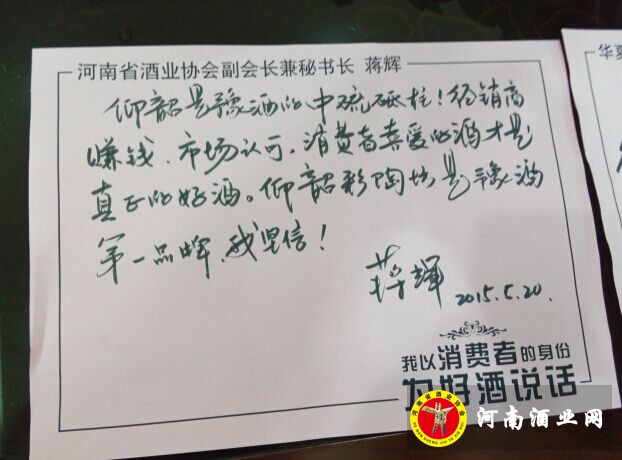 河南省酒业协会副会长兼秘书长 蒋辉
仰韶是豫酒的中流砥柱！经销商
赚钱、市场认可、消费者喜爱的酒才是
真正的好酒。仰韶彩陶坊是豫酒
第一品牌，我坚信！
蒋辉
2015.5.20.
我以消费者的身份
为好酒说话
河南省酒业协会
河南酒业网
华